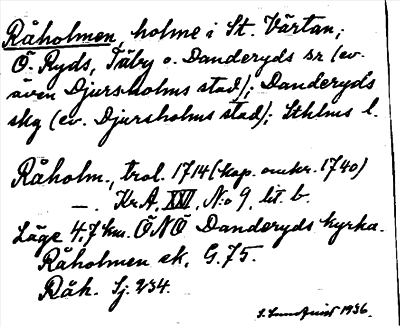 Råholmen, holme i St. Värtan;
Ö. Ryds, Täby o. Danderyds sr (ev.
även Djursholms stad); Danderyds
skg (ev. Djursholms stad); Sthlms l.
Råholm., trol. 1714 (kop. omkr. 1740)
—. Kr.A. XXI. N:o 9. lit. b.
Läge 4,7 km. ÖNÖ Danderyds kyrka.
Råholmen ek. G.75.
Råh. Sj. 234.
1936.